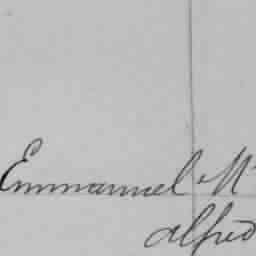 Emmanuel M
Alfred